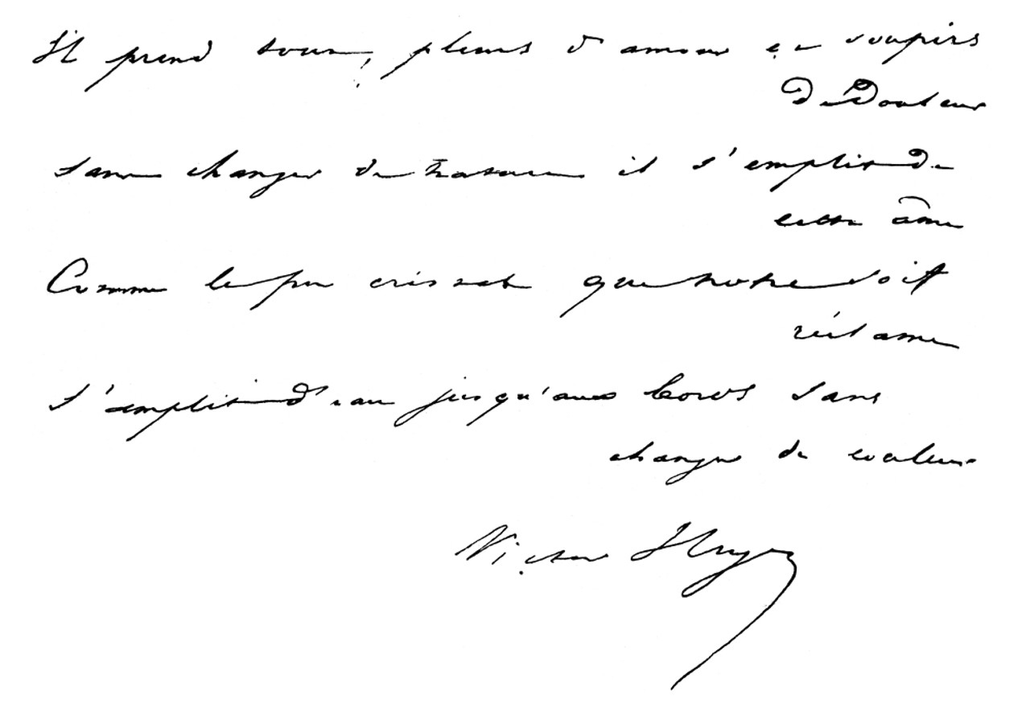 Il prend tout, pleurs d'amour et soupirs
de douleur
sans changer de il s'emplit de
cette âme
Comme le pur cristal que notre soif
réclame
s'emplit d'eau jusqu'aux bords sans
changer de couleur
Victor Hugo